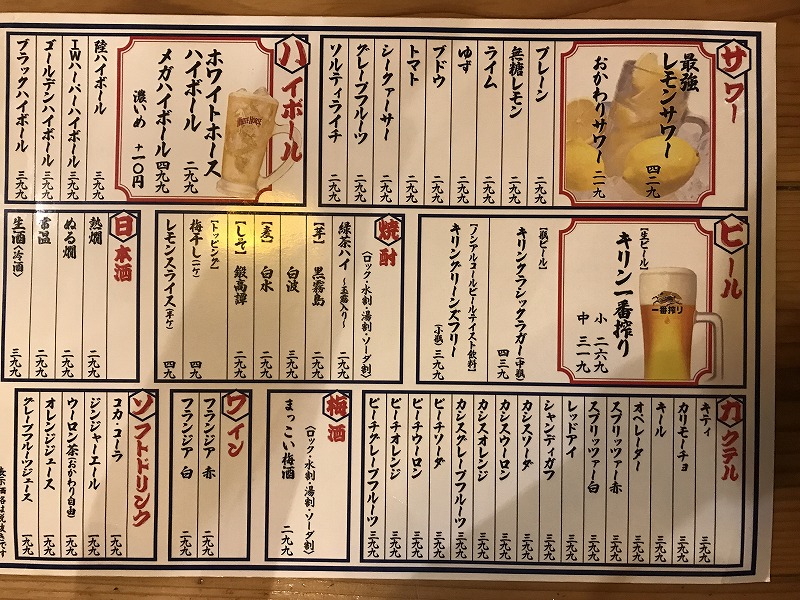 サワー
最強
レモンサワー 四二九
おかわりサワー 二一九
プレーン 二九九
無糖レモン 二九九
ライム 二九九
ゆず 二九九
ブドウ 二九九
トマト 二九九
シークァーサー 二九九
グレープフルーツ 二九九
ソルティライチ 二九九
ハイボール
ホワイトホース
ハイボール 二九九
メガハイボール 四九九
濃いめ +一〇円
陸ハイボール 三九九
IWハーパーハイボール 三九九
ゴールデンハイボール 三九九
ブラックハイボール 三九九
ビール
[生ビール]
キリン一番搾り
小 二六九
中 三一九
一番搾り
[瓶ビール]
キリンクラシックラガー(中瓶) 四三九
[ノンアルコールビールテイスト飲料]
キリングリーンズフリー
(小瓶) 三九九
焼酎
(ロック・水割・湯割・ソーダ割)
緑茶ハイ ~玉露入り~ 二九九
[芋] 黒霧島 二九九
白波 三九九
[麦] 白水 二九九
[しそ] 鍛高譚 二九九
[トッピング]
梅干し(一ケ) 四九
レモンスライス(半ケ) 四九
日本酒
熱燗 二九九
ぬる燗 二九九
常温 二九九
生酒(冷酒) 三九九
カクテル
キティ 三九九
カリモーチョ 三九九
キール 三九九
オペレーター 三九九
スプリッツァー赤 三九九
スプリッツァー白 三九九
レッドアイ 三九九
シャンディガフ 三九九
カシスソーダ 三九九
カシスウーロン 三九九
カシスオレンジ 三九九
カシスグレープフルーツ 三九九
ピーチソーダ 三九九
ピーチウーロン 三九九
ピーチオレンジ 三九九
ピーチグレープフルーツ 三九九
梅酒
(ロック・水割・湯割・ソーダ割)
まっこい梅酒 二九九
ワイン
フランジア 赤 二九九
フランジア 白 二九九
ソフトドリンク
コカ・コーラ 一九九
ジンジャーエール 一九九
ウーロン茶(おかわり自由) 一九九
オレンジジュース 一九九
グレープフルーツジュース 一九九
表示価格は税抜きです